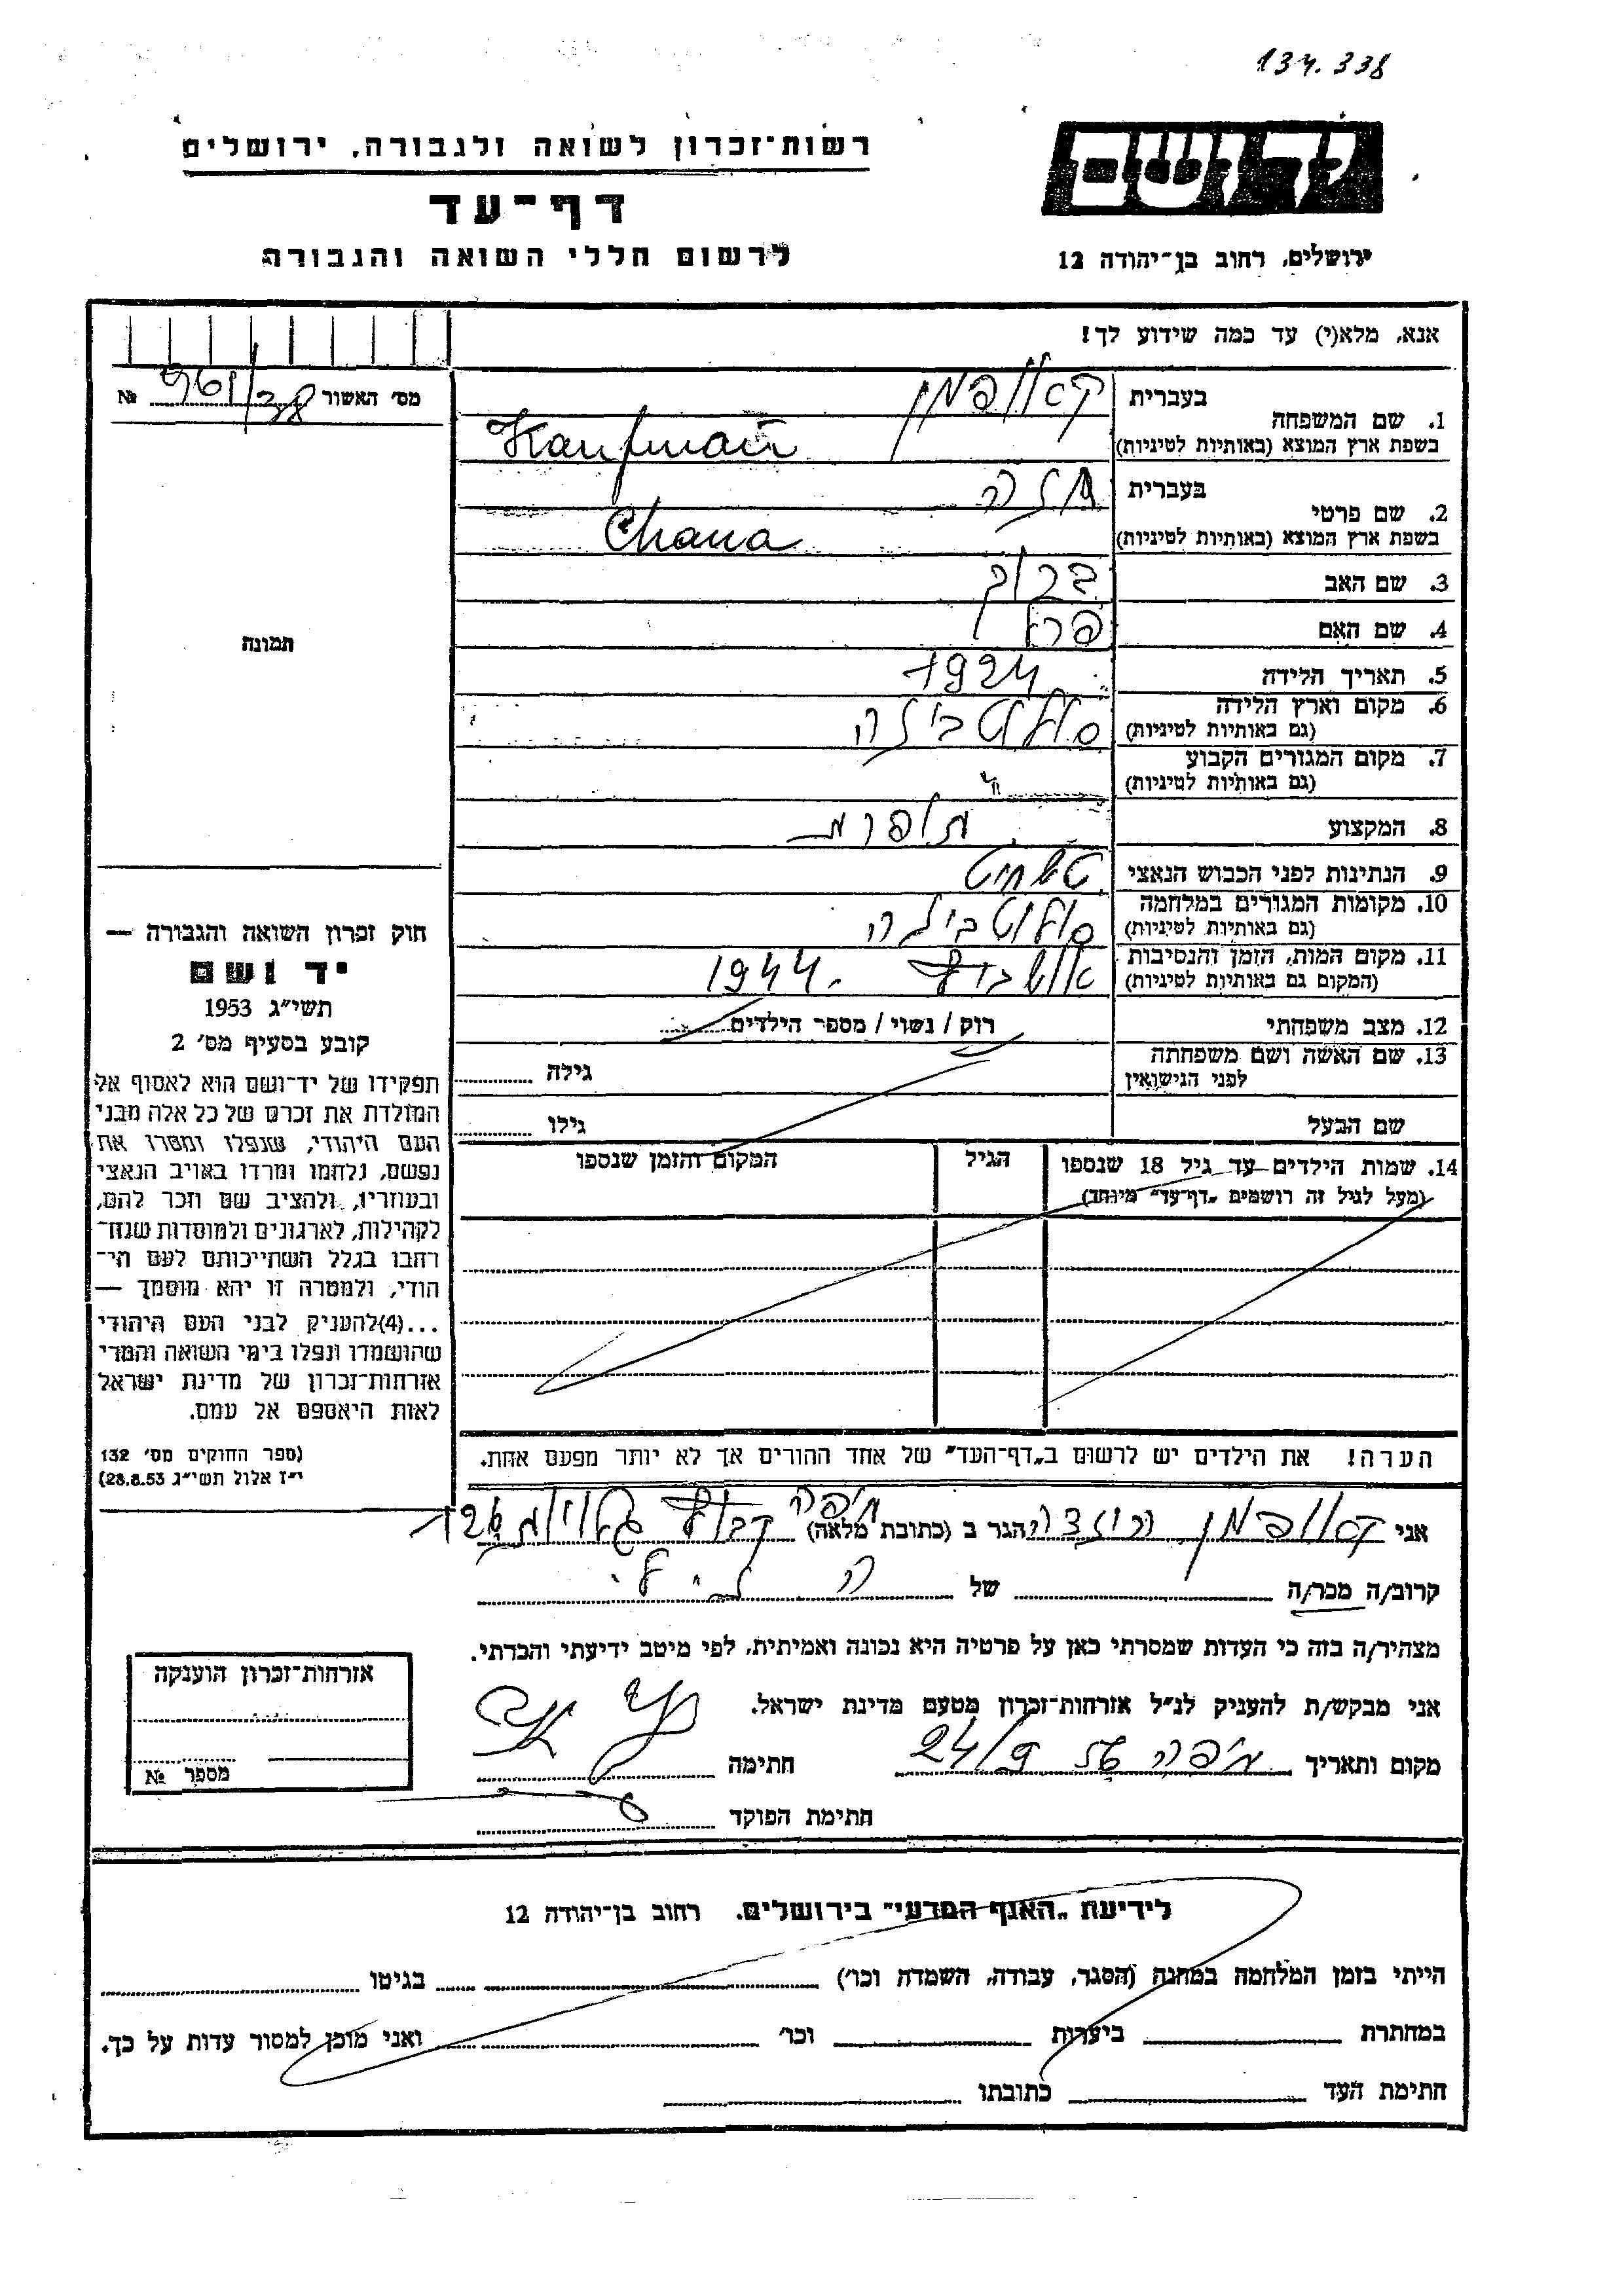 134.338
רשות־זכרון לשואה ולגבורה, ירושלים
דף־עד
לרשום חללי השואה והגבורה
יד ושם
ירושלים, רחוב בן־יהודה 12
אנא, מלא(י) עד כמה שידוע לך!
מס' האשור № 961/38
תמונה
1. שם המשפחה
בעברית קאופמן
בשפת ארץ המוצא (באותיות לטיניות) Kaufman
2. שם פרטי
בעברית חנה
בשפת ארץ המוצא (באותיות לטיניות) Chana
3. שם האב ברוך
4. שם האם
5. תאריך הלידה 1924
6. מקום וארץ הלידה
(גם באותיות לטיניות)
7. מקום המגורים הקבוע "
(גם באותיות לטיניות)
8. המקצוע תופרת
9. הנתינות לפני הכבוש הנאצי
10. מקומות המגורים במלחמה
(גם באותיות לטיניות)
11. מקום המות, הזמן והנסיבות 1944.
(המקום גם באותיות לטיניות)
12. מצב משפחתי רוק / נשוי / מספר הילדים
13. שם האשה ושם משפחתה
לפני הנישואין גילה
שם הבעל גילו
14. שמות הילדים עד גיל 18 שנספו
(מעל לגיל זה רושמים „דף־עד" מיוחד)
הגיל
המקום והזמן שנספו
הערה! את הילדים יש לרשום ב„דף־העד" של אחד ההורים אך לא יותר מפעם אחת.
חוק זכרון השואה והגבורה —
יד ושם
תשי"ג 1953
קובע בסעיף מס' 2
תפקידו של יד־ושם הוא לאסוף אל
המולדת את זכרם של כל אלה מבני
העם היהודי, שנפלו ומסרו את
נפשם, נלחמו ומרדו באויב הנאצי
ובעוזריו, ולהציב שם וזכר להם,
לקהילות, לארגונים ולמוסדות שנח־
רחבו בגלל השתייכותם לעם הי־
הודי, ולמטרה זו יהא מוסמך —
...(4)להעניק לבני העם היהודי
שהושמדו ונפלו בימי השואה והמרי
אזרחות־זכרון של מדינת ישראל
לאות היאספם אל עמם.
(ספר החוקים מס' 132
י"ז אלול תשי"ג 28.8.53)
אני קאופמן הגר ב (כתובת מלאה) חיפה
קרוב/ה מכר/ה של
מצהיר/ה בזה כי העדות שמסרתי כאן על פרטיה היא נכונה ואמיתית, לפי מיטב ידיעתי והכרתי.
אני מבקש/ת להעניק לנ"ל אזרחות־זכרון מטעם מדינת ישראל.
מקום ותאריך חיפה 24/9 חתימה
חתימת הפוקד
אזרחות־זכרון הוענקה
מספר №
לידיעת „האגף המדעי" בירושלים. רחוב בן־יהודה 12
הייתי בזמן המלחמה במחנה (הסגר, עבודה, השמדה וכו') בגיטו
במחתרת ביערות וכו' ואני מוכן למסור עדות על כך.
חתימת העד כתובתו